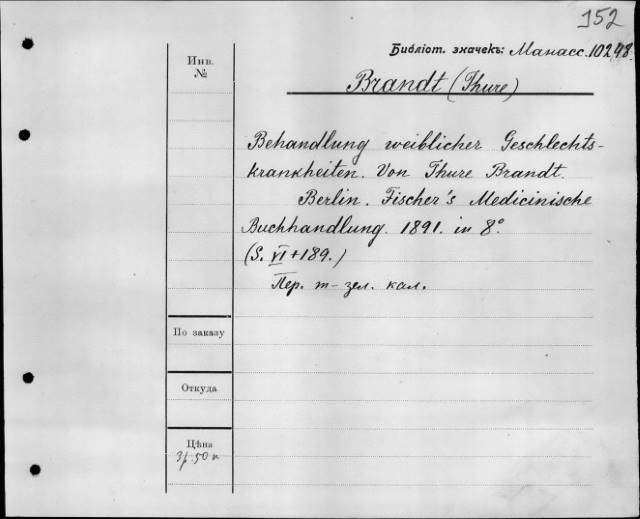 152
Библіот. значекъ: Манасс. 10248.
Инв.
№
Brandt (Thure)
Behandlung weiblicher Geschlechts-
krankheiten. Von Thure Brandt.
Berlin. Fischer's Medicinische
Buchhandlung. 1891. in 8°
(S. VI + 189.)
Пер. т-зел. кал.
По заказу
Откуда
Цѣна
3р. 50 к